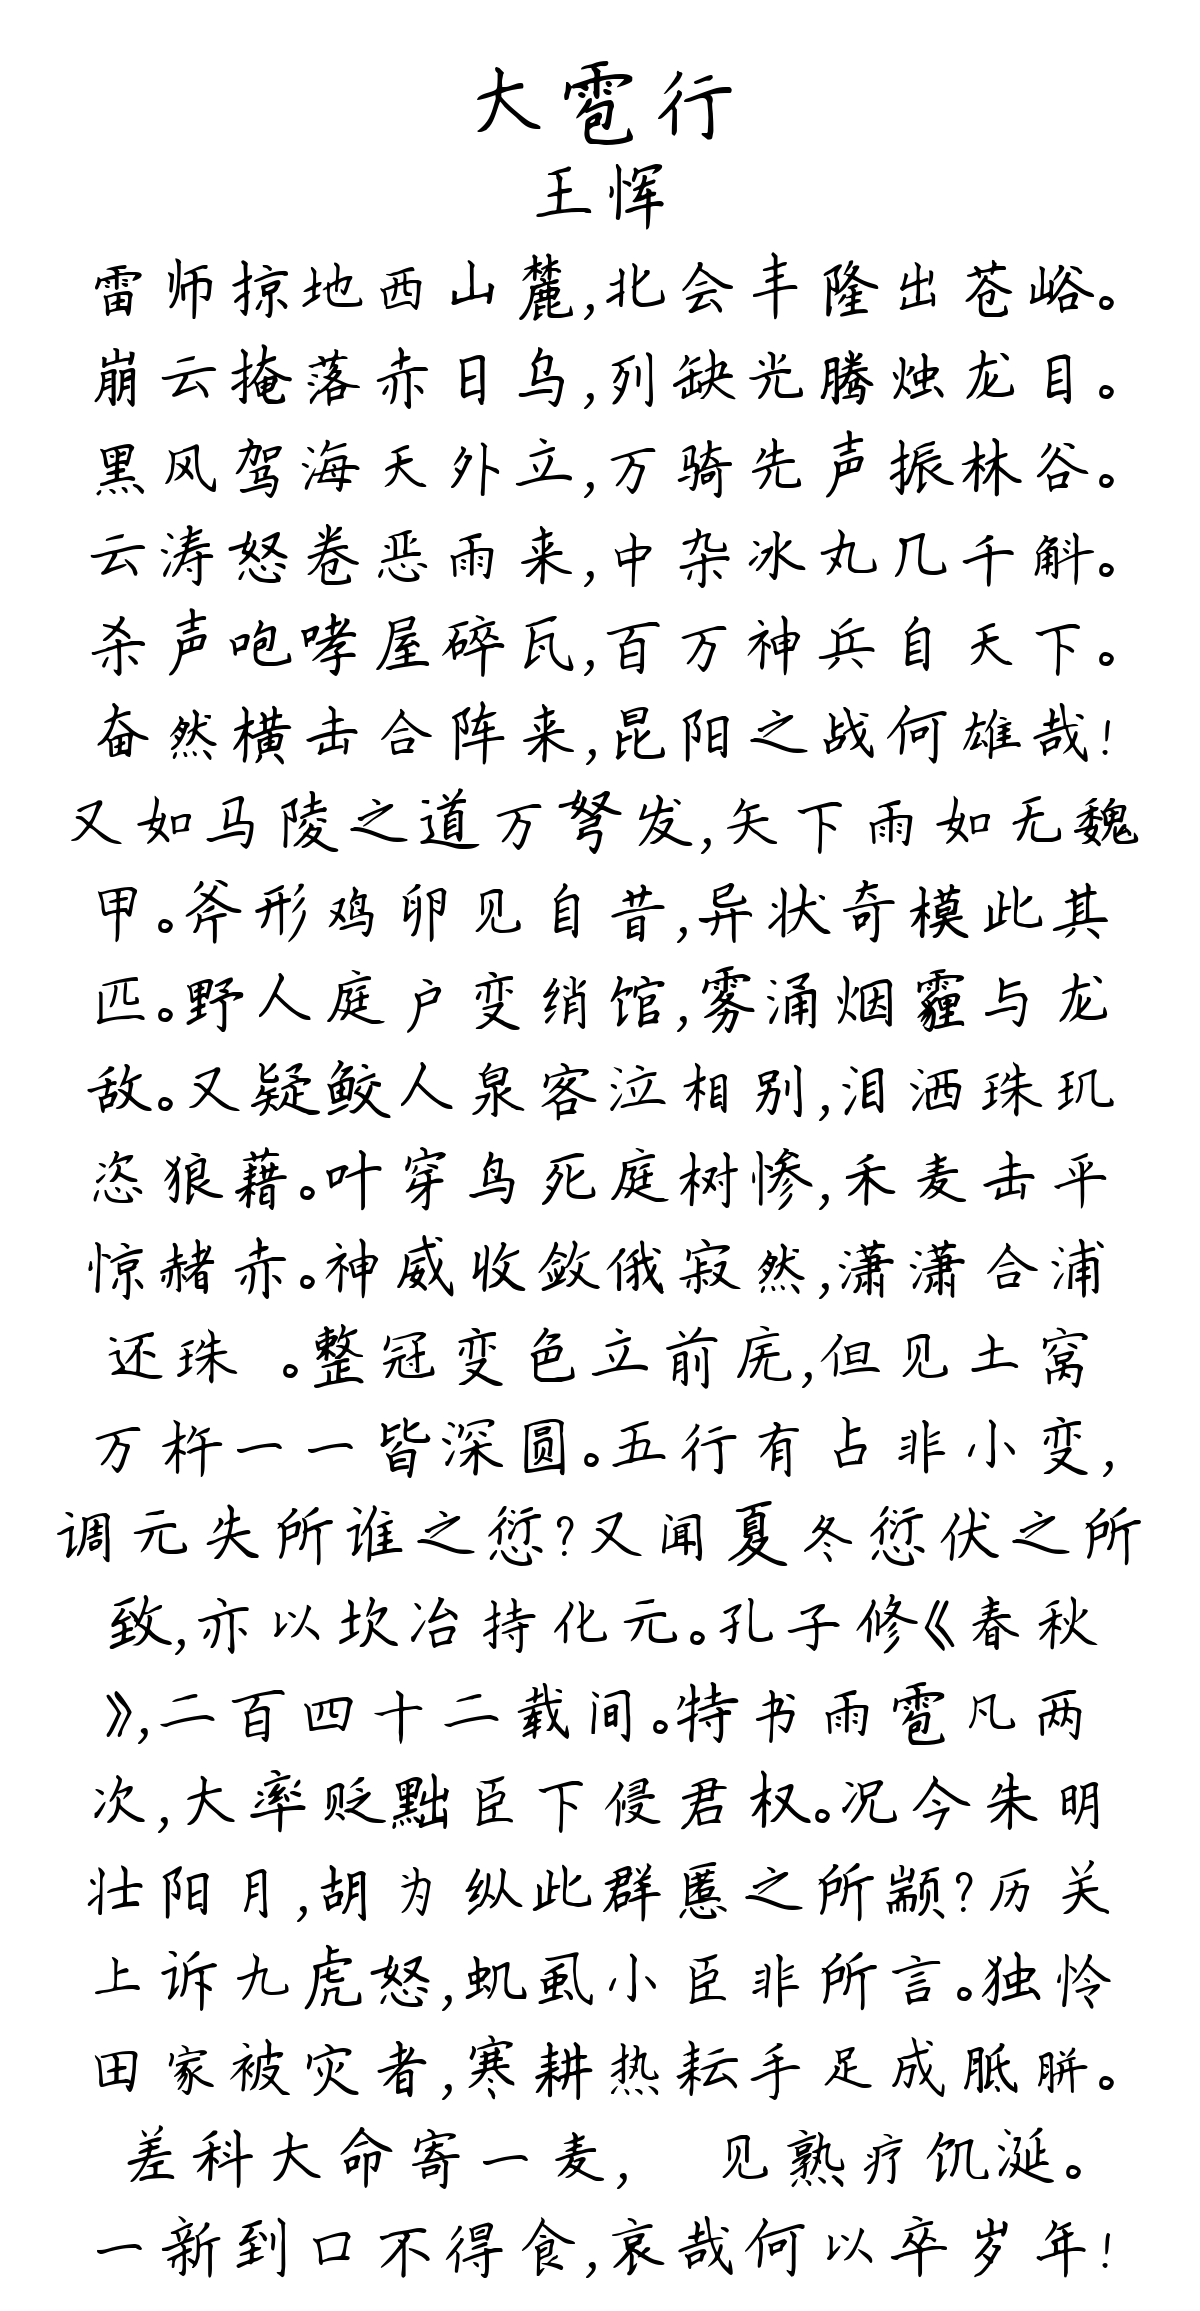 大雹行
王恽
雷师掠地西山麓,北会丰隆出苍峪。
崩云掩落赤日乌,列缺光腾烛龙目。
黑风驾海天外立,万骑先声振林谷。
云涛怒卷恶雨来,中杂冰丸几千斛。
杀声咆哮屋碎瓦,百万神兵自天下。
奋然横击合阵来,昆阳之战何雄哉!
又如马陵之道万弩发,矢下雨如无魏
甲。斧形鸡卵见自昔,异状奇模此其
匹。野人庭户变绡馆,雾涌烟霾与龙
敌。又疑鲛人泉客泣相别,泪洒珠玑
恣狼藉。叶穿鸟死庭树惨,禾麦击平
惊赭赤。神威收敛俄寂然,潇潇合浦
还珠 。整冠变色立前庑,但见土窝
万杵一一皆深圆。五行有占非小变,
调元失所谁之愆?又闻夏冬愆伏之所
致,亦以坎冶持化元。孔子修《春秋
》,二百四十二载间。特书雨雹凡两
次,大率贬黜臣下侵君权。况今朱明
壮阳月,胡为纵此群慝之所颛?历关
上诉九虎怒,虮虱小臣非所言。独怜
田家被灾者,寒耕热耘手足成胝胼。
差科大命寄一麦, 见熟疗饥涎。
一新到口不得食,哀哉何以卒岁年!